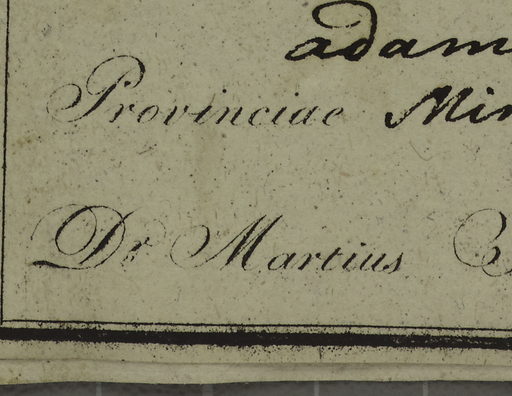 adam
Provinciae Min
Dr Martius